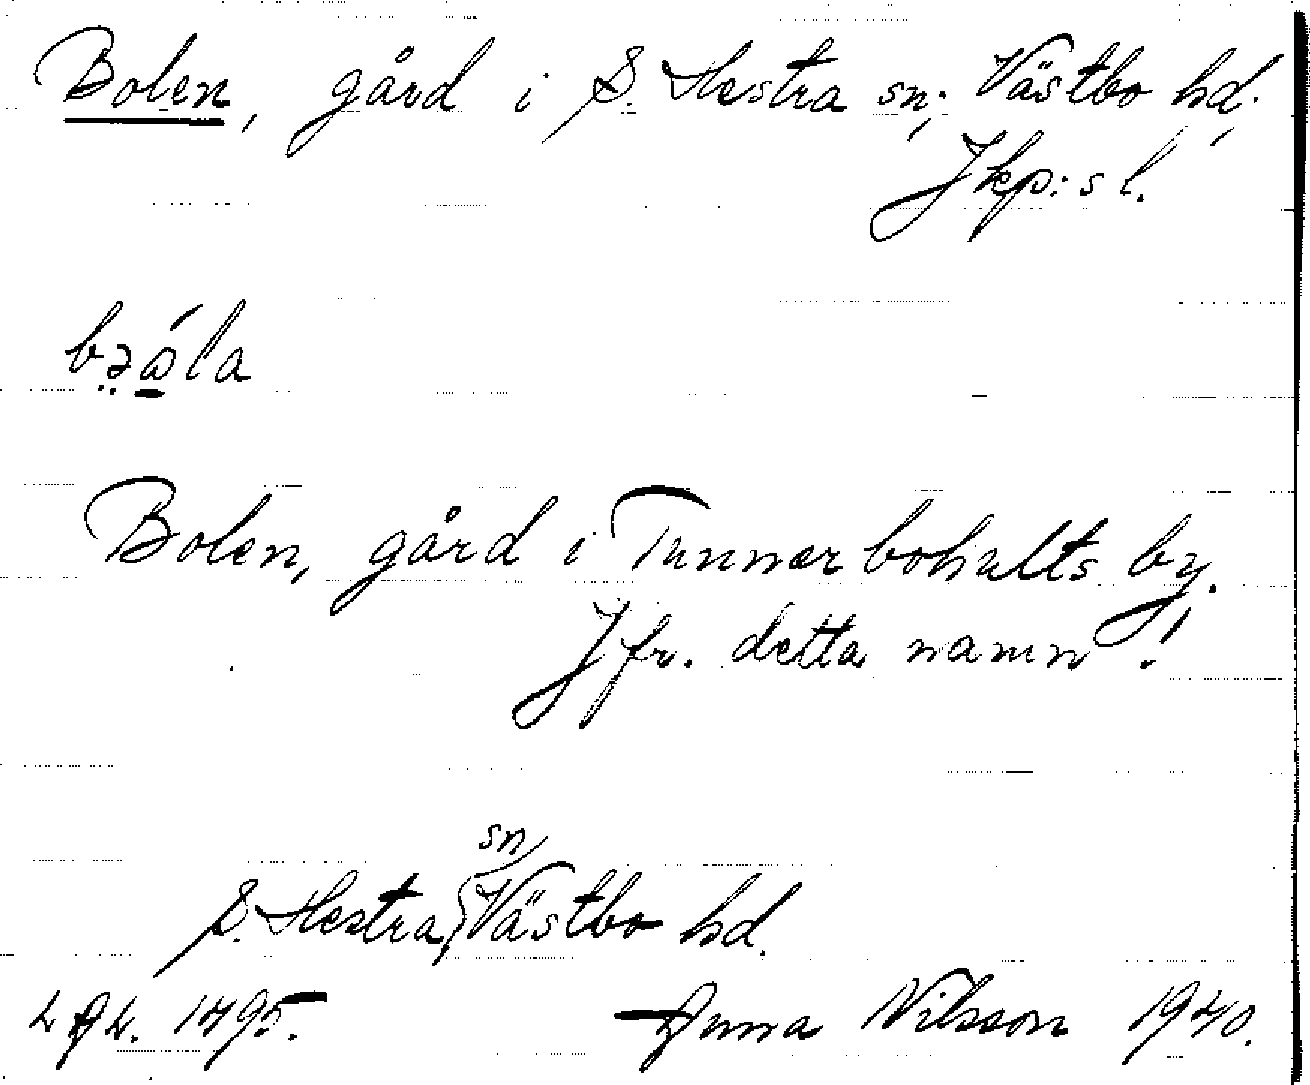 Bolen, gård i S. Hestra sn, Västbo hd,
Jkp:s l.
Bolen, gård i Tunnerbohults by.
Jfr. detta namn!
sn
S. Hestra, Västbo hd.
1495. Anna Nilsson 1940.